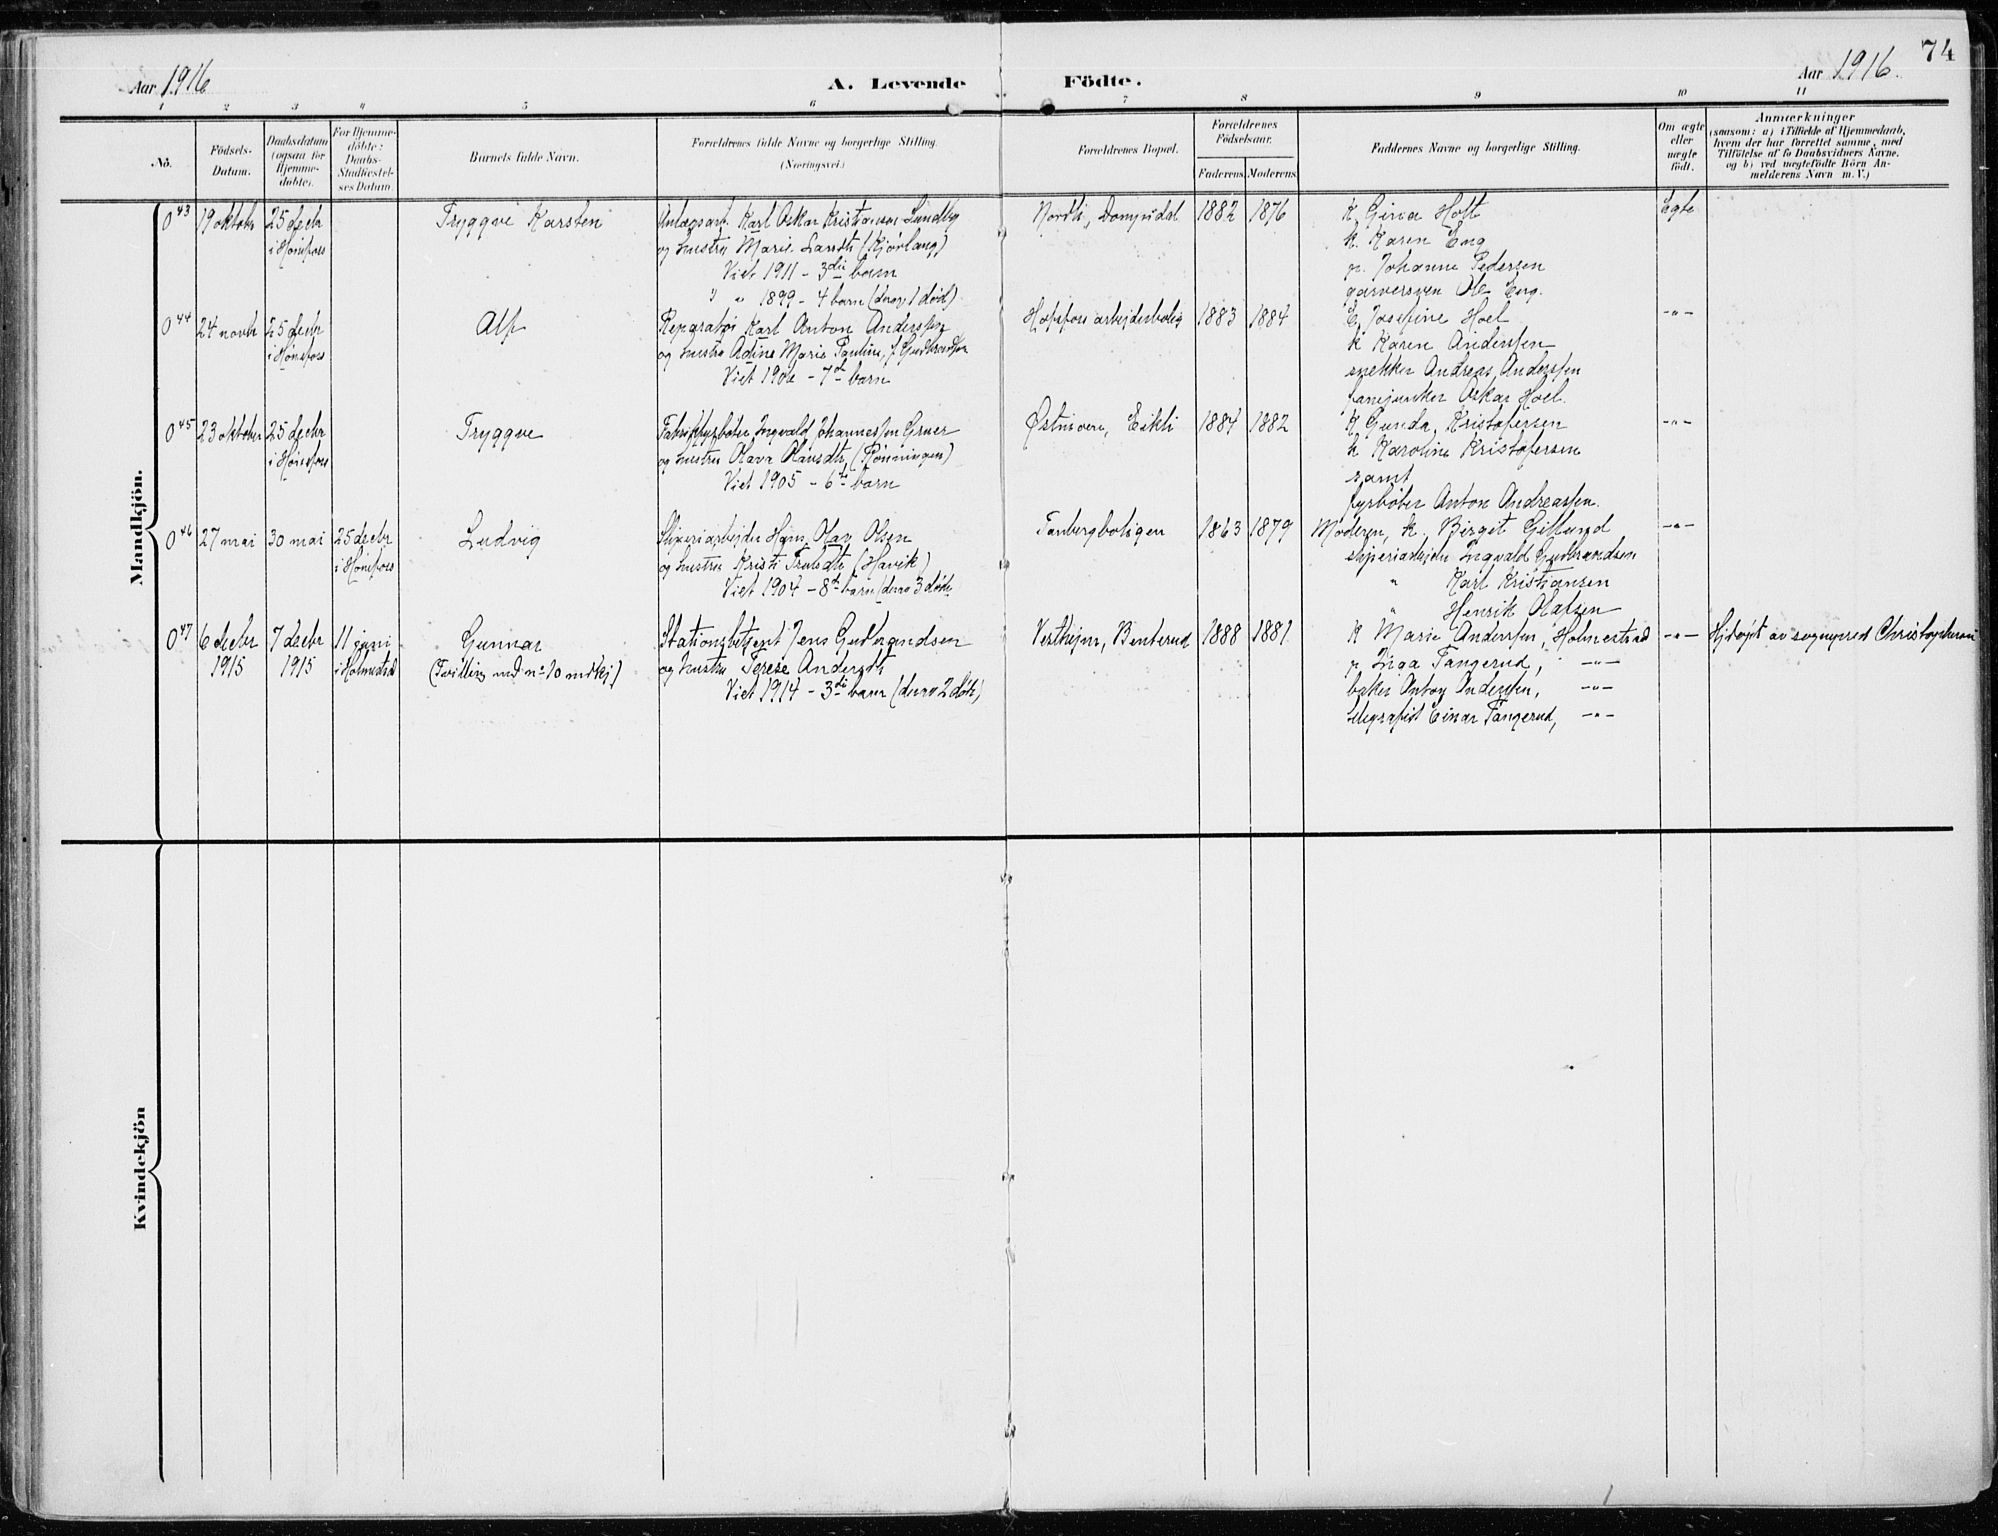 74
Aar 1916
A. Levende Födte.
Aar 1916.
1 2 3 4 5 6 7 8 9 10 11
No.
Födsels-
Datum.
Daabsdatum
(ogsaa for
Hjemme-
döbte).
For Hjemme-
döbte:
Daabs-
Stadfæstel-
ses Datum.
Barnets fulde Navn.
Forældrenes fulde Navne og borgerlige Stilling.
(Næringsvei.)
Forældrenes Bopæl.
Forældrenes
Födselsaar.
Faderens Moderens
Faddernes Navne og borgerlige Stilling.
Om ægte
eller
uægte
födt.
Anmærkninger
(saasom: a) i Tilfælde af Hjemmedaab,
hvem der har forrettet samme, med
Tilföielse af to Daabsvidners Navne,
og b) ved uægtefödte Börn An-
melderens Navn m. V.)
Mandkjön.
43
19 oktobr
25 decbr
i Hønefoss
Tryggve Karsten
Karl Oskar Kristiansen Lundby
og hustru Marie Larsdtr (Kjørlaug)
Viet 1911 - 3die barn
" " 1899 - 4 barn (derav 1 død)
Nordli, Somdal
1882
1876
K. Gina Holt
k. Karen Eng
p. Johanne Pedersen
garversven Ole Eng.
Egte
44
24 novbr
25 decbr
i Hønefoss
Alf
Reparatør Karl Anton Anderssen
og hustru Adine Marie Pauline, f. Gudbrandsen
Viet 1906 - 7de barn
Hofsfoss arbejderbolig
1883
1884
E. Josefine Hoel
k Karen Anderssen
snekker Andreas Anderssen
fanejunker Oskar Hoel.
-"-
45
23 oktober
25 decbr
i Hønefoss
Tryggve
Fabrikfyrbøter Ingvald Johannessen Gruer
og hustru Olava Olausdtr, (Rønningen)
Viet 1905 - 6te barn
Østmoen, Eikli
1884
1882
K. Gunda Kristofersen
k Karoline Kristofersen
samt
fyrbøter Anton Andreassen.
-"-
46
27 mai
30 mai
25 decbr
i Hønefoss
Ludvig
Sliperiarbejder Hans Olav Olsen
og hustru Kristi Trulsdtr (Havik)
Viet 1904 - 8de barn (derav 3 døde
Tanbergboligen
1863
1879
Moderen, k. Birget Gillund
sliperiarbejder Ingvald Gudbrandsen
" Karl Kristiansen
" Henrik Olafsen
-"-
47
6 decbr
1915
7 decbr
1915
11 juni
i Holmestrand
Gunnar
(Tvilling med no 10 mdkj)
Stationsbetjent Jens Gudbrandsen
og hustru Terese Andersdtr
Viet 1914 - 3die barn (derav 2 døde)
Vesthejm, Benterud
1888
1881
K Marie Anderssen, Holmestrand
p. Inga Tangerud, -"-
baker Anton Anderssen, -"-
telegrafist Einar Tangerud, -"-
-"-
Hjdøpt av sogneprest Christophersen
Kvindekjön